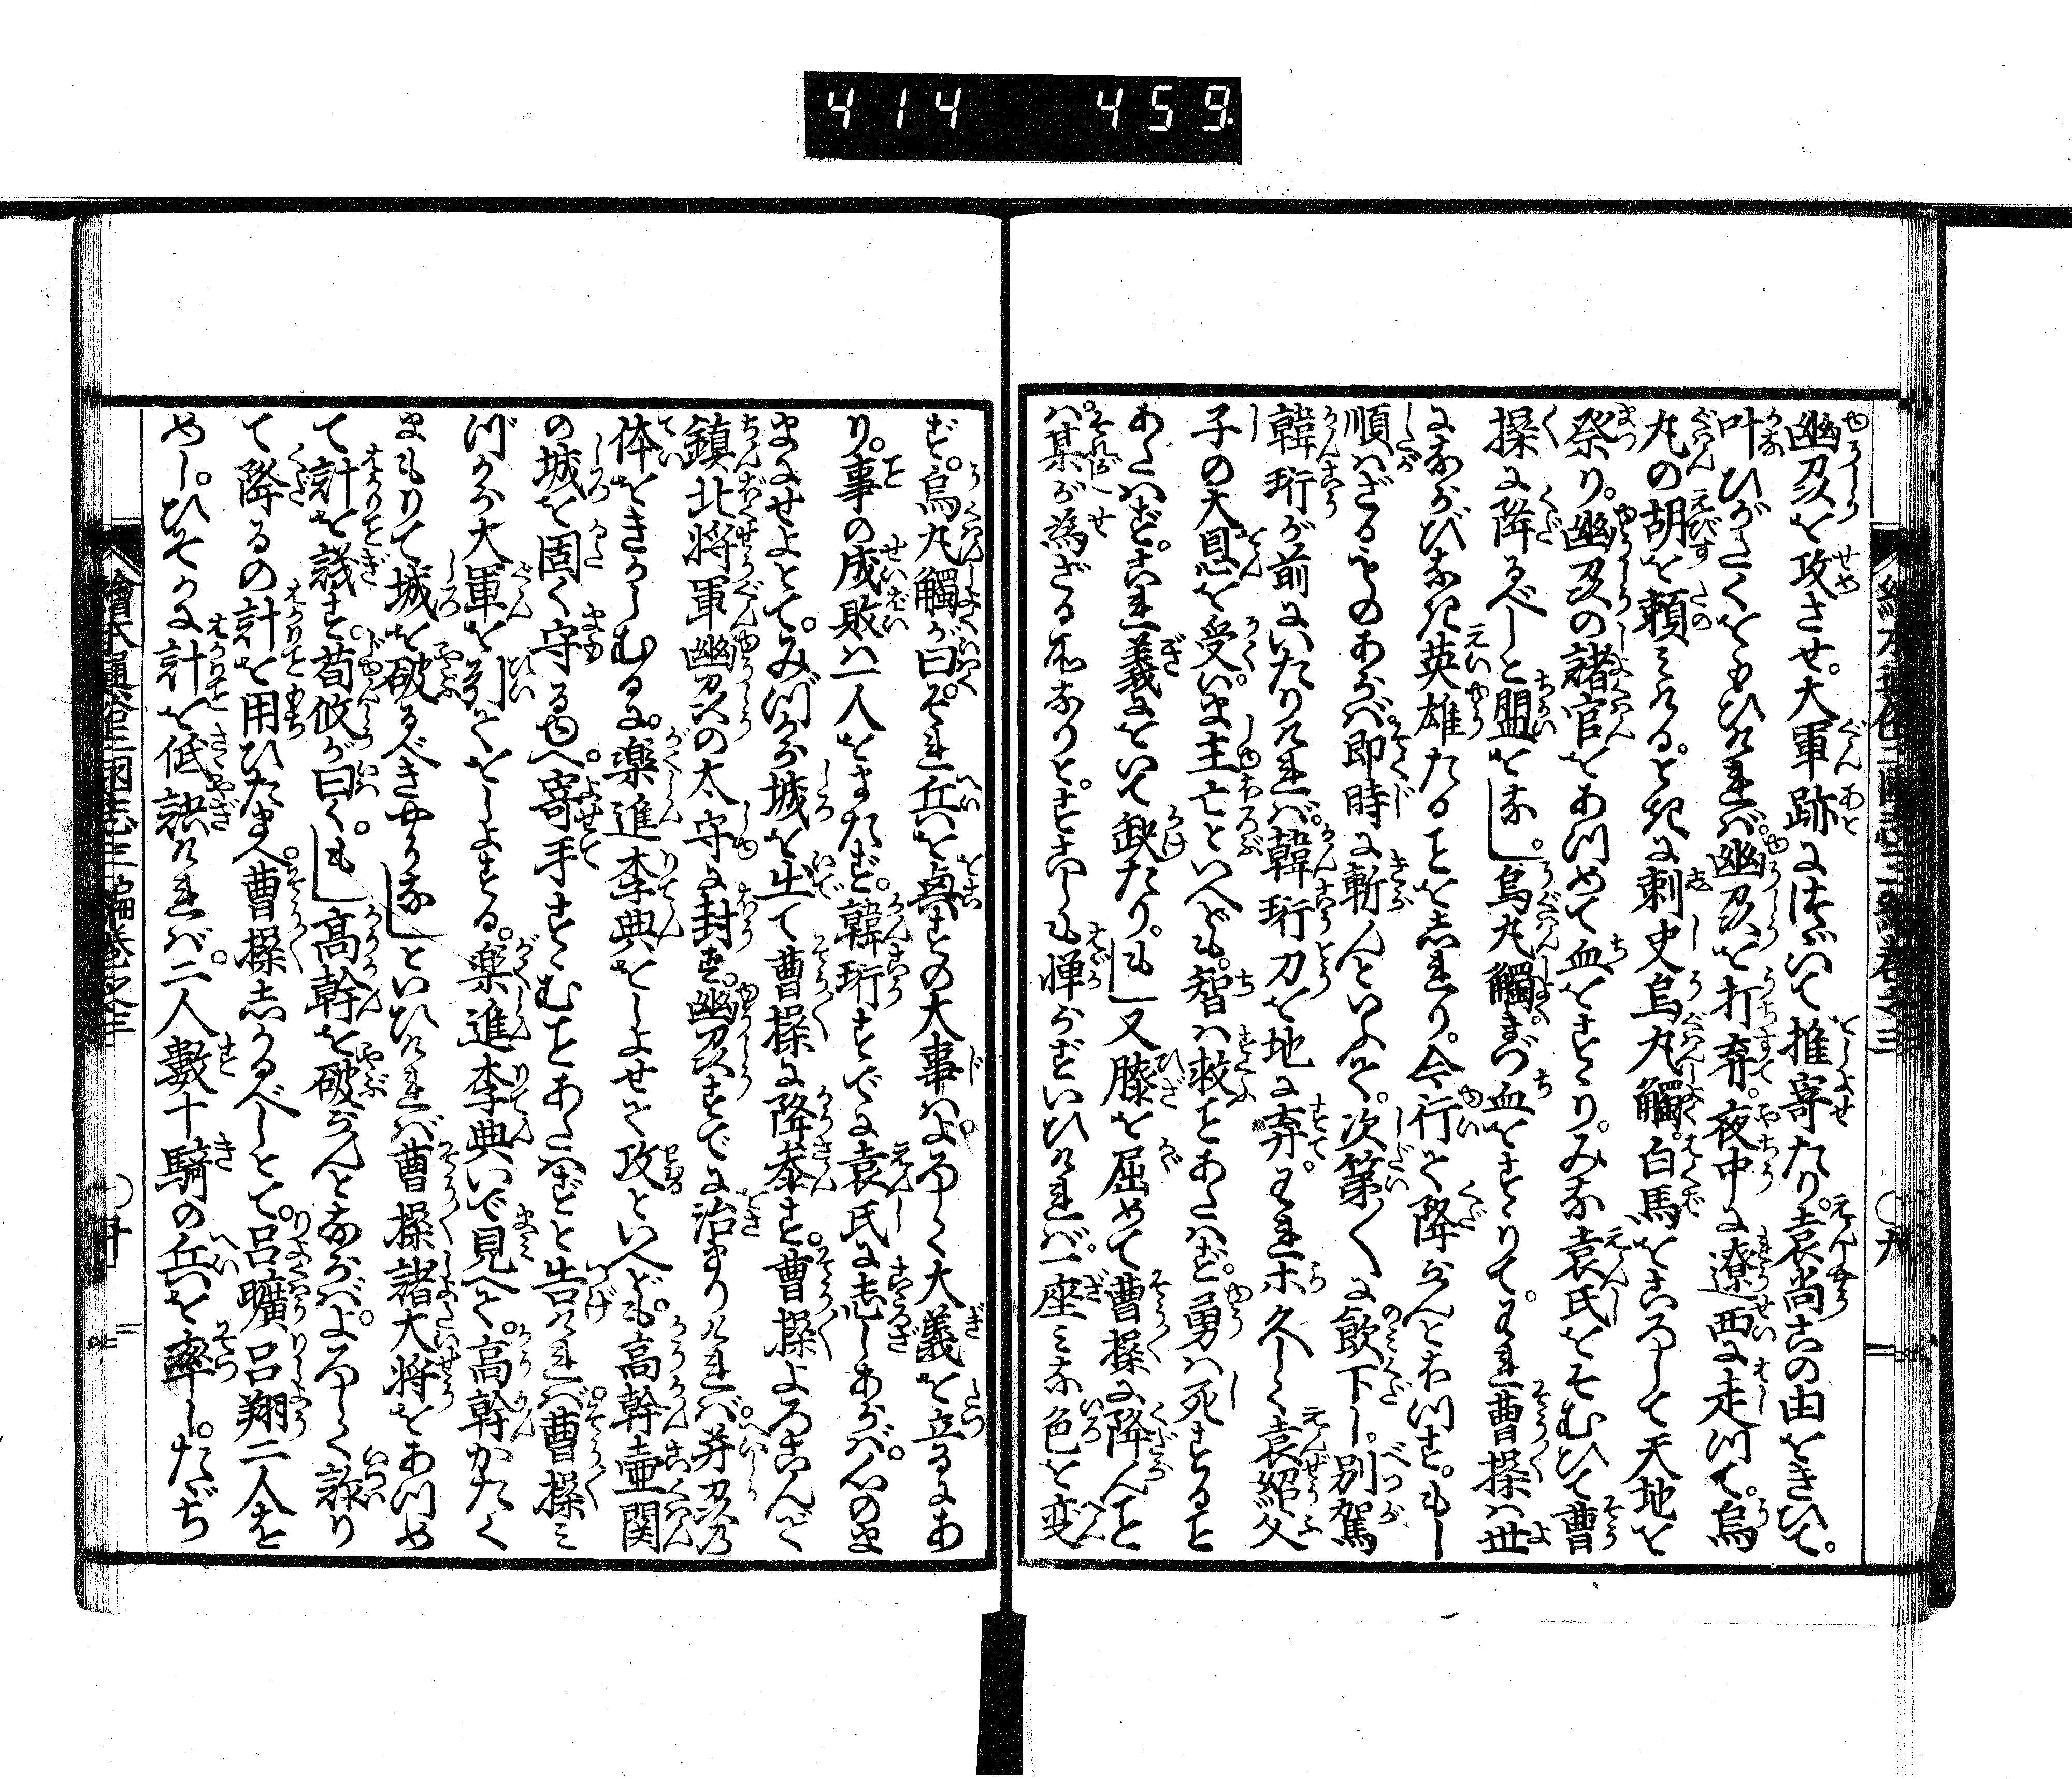 414 459
幽州を攻させ。大軍跡につゞいて推寄たり。袁尚この由をきひて。
叶ひがたくをもひければ。幽州を打弃。夜中に遼西に走つて。烏
丸の胡を頼みける。ときに刺史烏丸觸。白馬をころして天地を
祭り。幽州の諸官をあつめて血をすゝり。みな袁氏をそむひて曹
操に降るべしと盟をなし。烏丸觸まづ血をすゝりて。それ曹操ハ世
にならびなき英雄たることをしれり。今行て降らんとおもす。もし
順ハざるものあらバ即時に斬んといふて。次第〱に飲下し。別駕
韓珩が前にいたりければ。韓珩刀を地に弃。われ久しく袁紹父
子の大恩を受。いま主亡といへども。智ハ救ことあたハず。勇ハ死すること
あたハず。これ義にをいて缺たり。もし又膝を屈めて曹操に降んこと
ハ。某が為ざる所なりと。すこしも憚らずいひければ。一座みな色を変
ず。烏丸觸が曰。それ兵を興すの大事ハ。よろしく大義を立るにあ
り。事の成敗ハ一人をまたず。韓珩すでに袁氏に志しあらバ。心のま
まにせよとて。みづから城を出て曹操に降参す。曹操よろこんで
鎮北将軍幽州の太守に封ず。幽州すでに治まりければ。并州の
体をきかしむるに。楽進李典をしよせて攻といへども。高幹壷関
の城を固く守るゆへ。寄手すゝむことあたハずと告ければ。曹操み
づから大軍を引てをしよする。楽進李典いで見へて。高幹かたく
まもりて城を破るべきやうなしといひければ曹操諸大将をあつめ
て計を議す。荀攸が曰く。もし高幹を破らんとならバ。よろしく詐り
て降るの計を用ひたまへ。曹操しかるべしとて。呂曠呂翔二人を
めし。ひそかに計を低語ければ。二人數十騎の兵を率し。たゞち
繪本通俗三国志三編巻之三